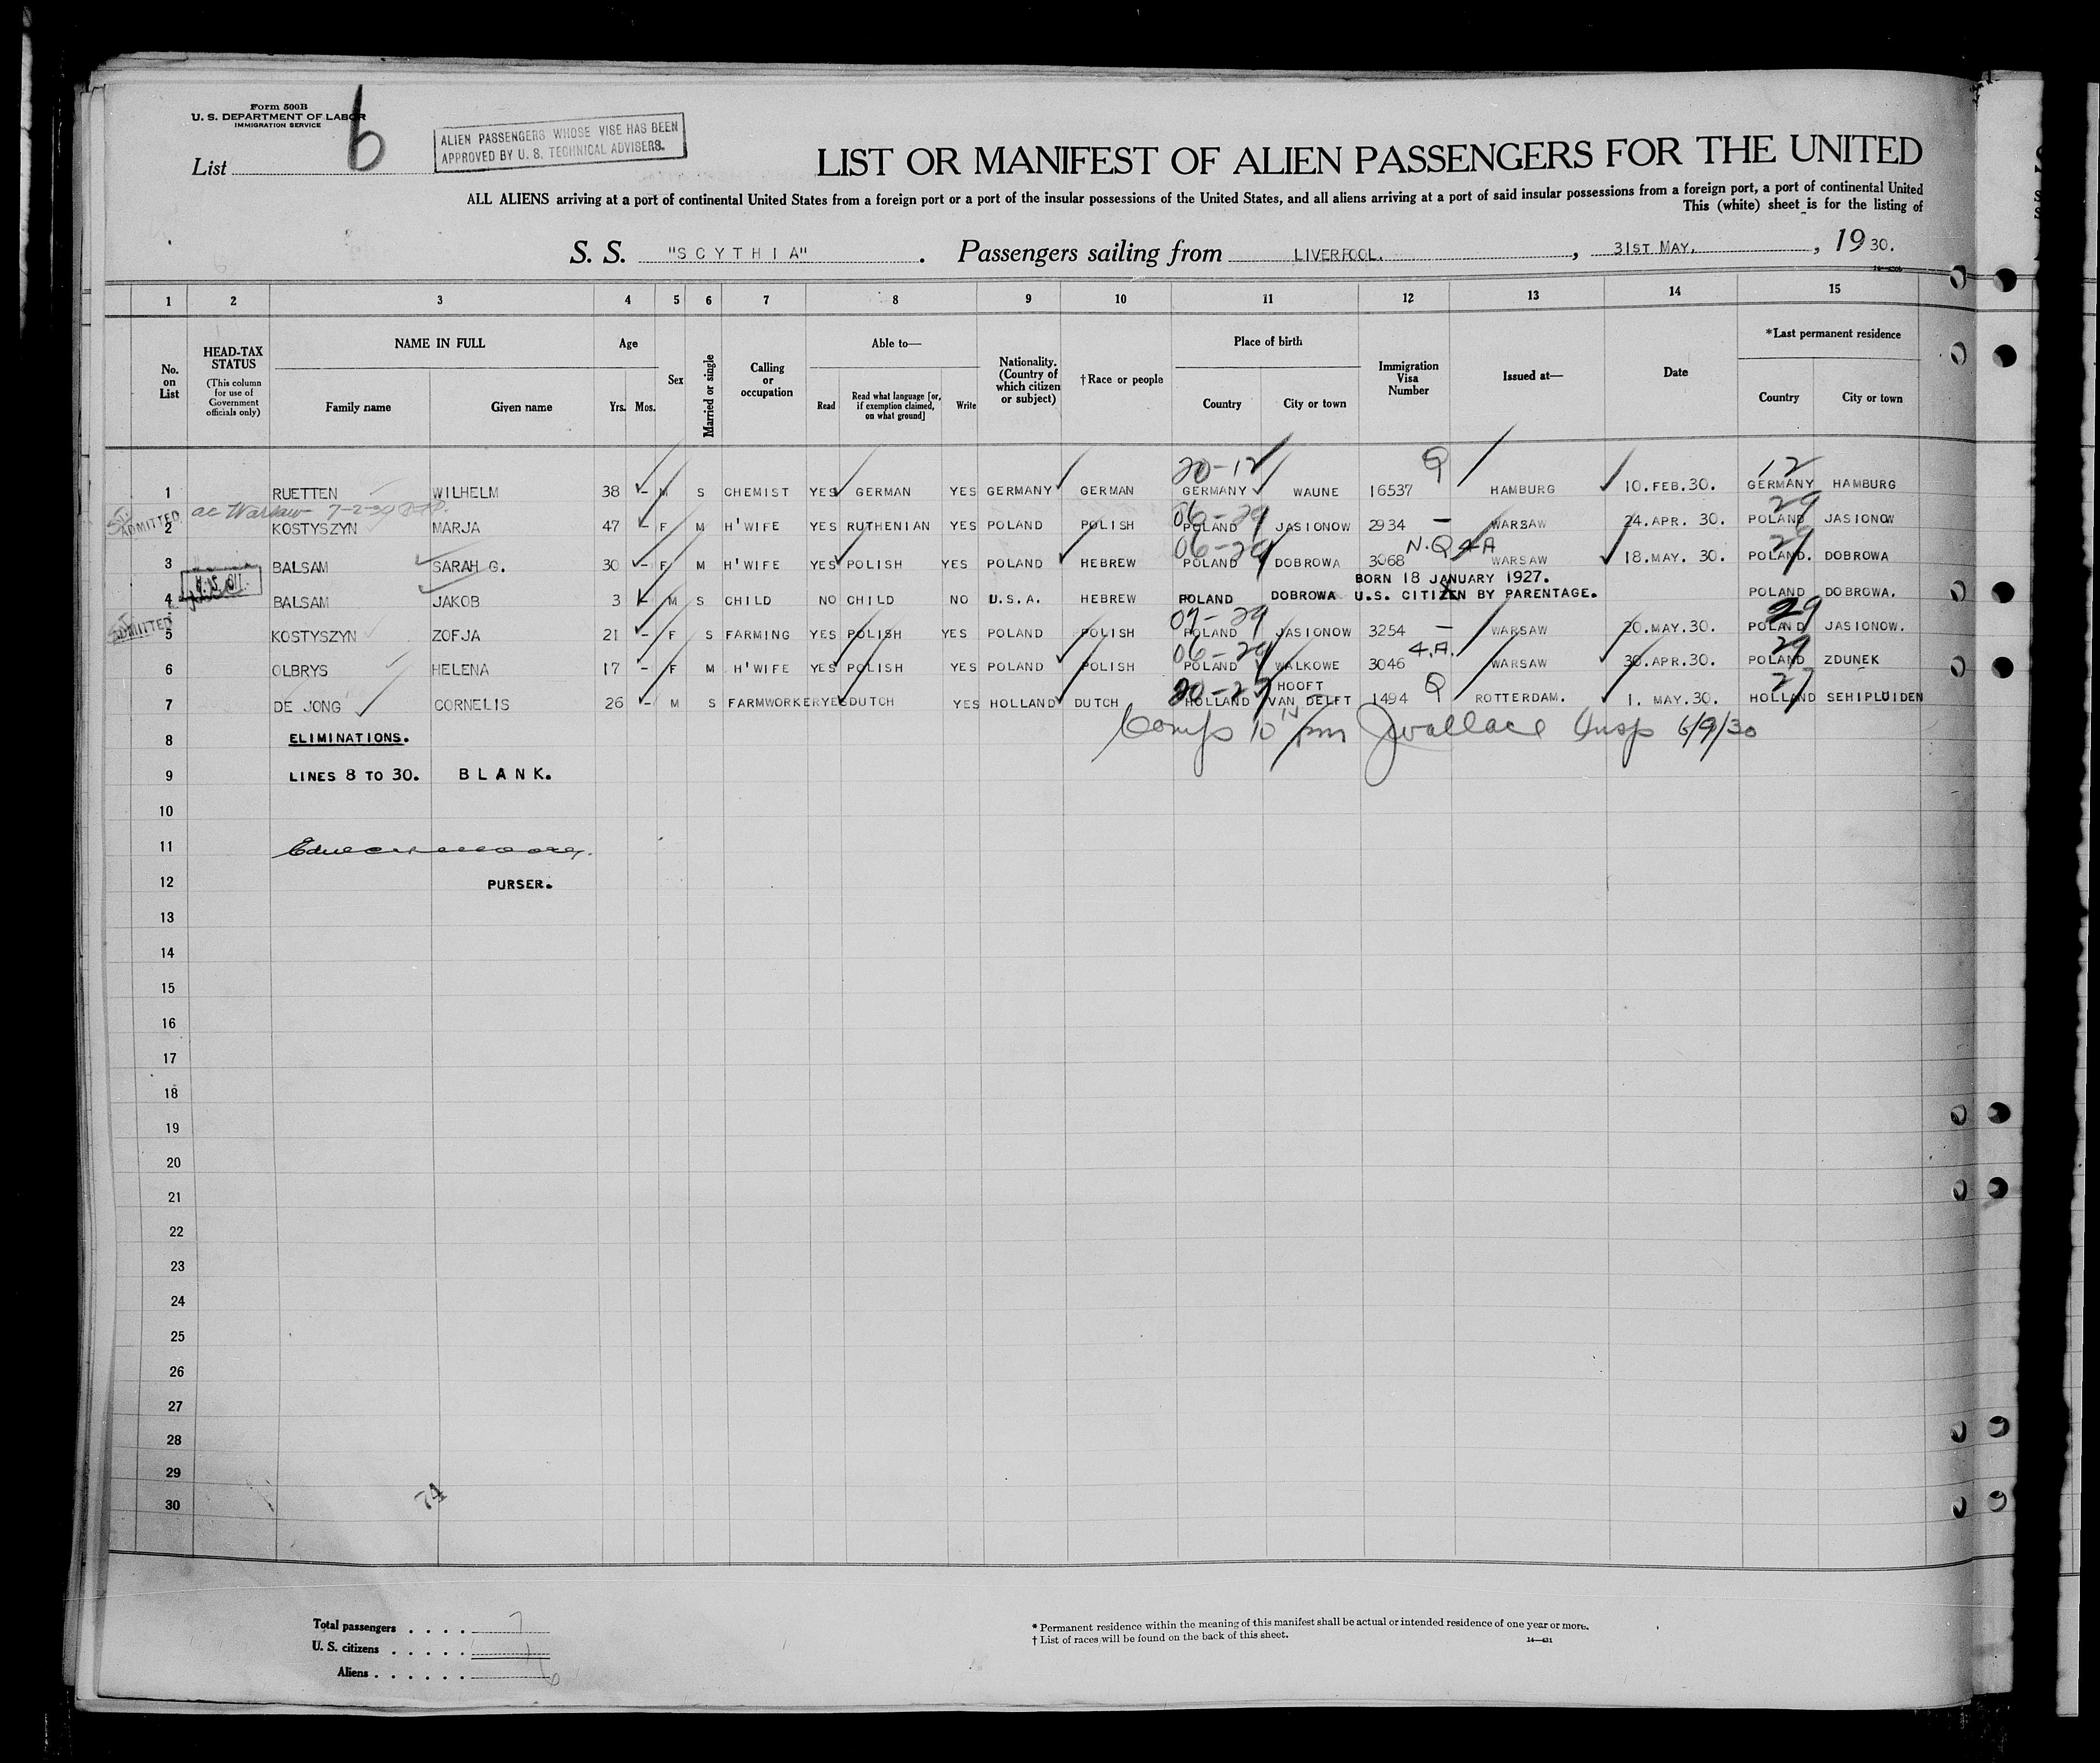 Form 500B
U. S. DEPARTMENT OF LABOR
IMMIGRATION SERVICE
List 6
ALIEN PASSENGERS WHOSE VISE HAS BEEN
APPROVED BY U. S. TECHNICAL ADVISERS.
LIST OR MANIFEST OF ALIEN PASSENGERS FOR THE UNITED
ALL ALIENS arriving at a port of continental United States from a foreign port or a port of the insular possessions of the United States, and all aliens arriving at a port of said insular possessions from a foreign port, a port of continental United
This (white) sheet is for the listing of
S. S. "SCYTHIA". Passengers sailing from LIVERPOOL. , 31ST MAY, , 19 30.
1 2 3 4 5 6 7 8 9 10 11 12 13 14 15
No. on List
HEAD-TAX STATUS (This column for use of Government officials only)
NAME IN FULL
Family name Given name
Age
Yrs. Mos.
Sex
Married or single
Calling or occupation
Able to—
Read Read what language [or, if exemption claimed, on what ground] Write
Nationality. (Country of which citizen or subject)
†Race or people
Place of birth
Country City or town
Immigration Visa Number
Issued at—
Date
*Last permanent residence
Country City or town
20-12 Q 12
1 RUETTEN WILHELM 38 - M S CHEMIST YES GERMAN YES GERMANY GERMAN GERMANY WAUNE 16537 HAMBURG 10.FEB.30. GERMANY HAMBURG
ac Warsaw 7-2-30
06-29 29
ADMITTED 2 KOSTYSZYN MARJA 47 - F M H'WIFE YES RUTHENIAN YES POLAND POLISH POLAND JASIONOW 2934 — WARSAW 24.APR. 30. POLAND JASIONOW
06-29 N.Q 4A 29
3 BALSAM SARAH G. 30 - F M H'WIFE YES POLISH YES POLAND HEBREW POLAND DOBROWA 3068 WARSAW 18.MAY. 30. POLAND. DOBROWA
BORN 18 JANUARY 1927.
U.S. CIT.
4 BALSAM JAKOB 3 - M S CHILD NO CHILD NO U.S.A. HEBREW POLAND DOBROWA U.S. CITIZEN BY PARENTAGE. POLAND DOBROWA.
07-29 29
ADMITTED 5 KOSTYSZYN ZOFJA 21 - F S FARMING YES POLISH YES POLAND POLISH POLAND JASIONOW 3254 — WARSAW 20.MAY.30. POLAND JASIONOW.
06-29 4.A. 29
6 OLBRYS HELENA 17 - F M H'WIFE YES POLISH YES POLAND POLISH POLAND WALKOWE 3046 WARSAW 30.APR.30. POLAND ZDUNEK
20-27 HOOFT Q 27
7 DE JONG CORNELIS 26 - M S FARMWORKER YES DUTCH YES HOLLAND DUTCH HOLLAND VAN DELFT 1494 ROTTERDAM. 1. MAY.30. HOLLAND SEHIPLUIDEN
8 ELIMINATIONS.
Wallace Insp 6/9/30
9 LINES 8 TO 30. BLANK.
10
11
12 PURSER.
13
14
15
16
17
18
19
20
21
22
23
24
25
26
27
28
29
30
74
Total passengers . . . . 7
U. S. citizens . . . . . 1
Aliens . . . . . . 6
* Permanent residence within the meaning of this manifest shall be actual or intended residence of one year or more.
† List of races will be found on the back of this sheet.
14—431